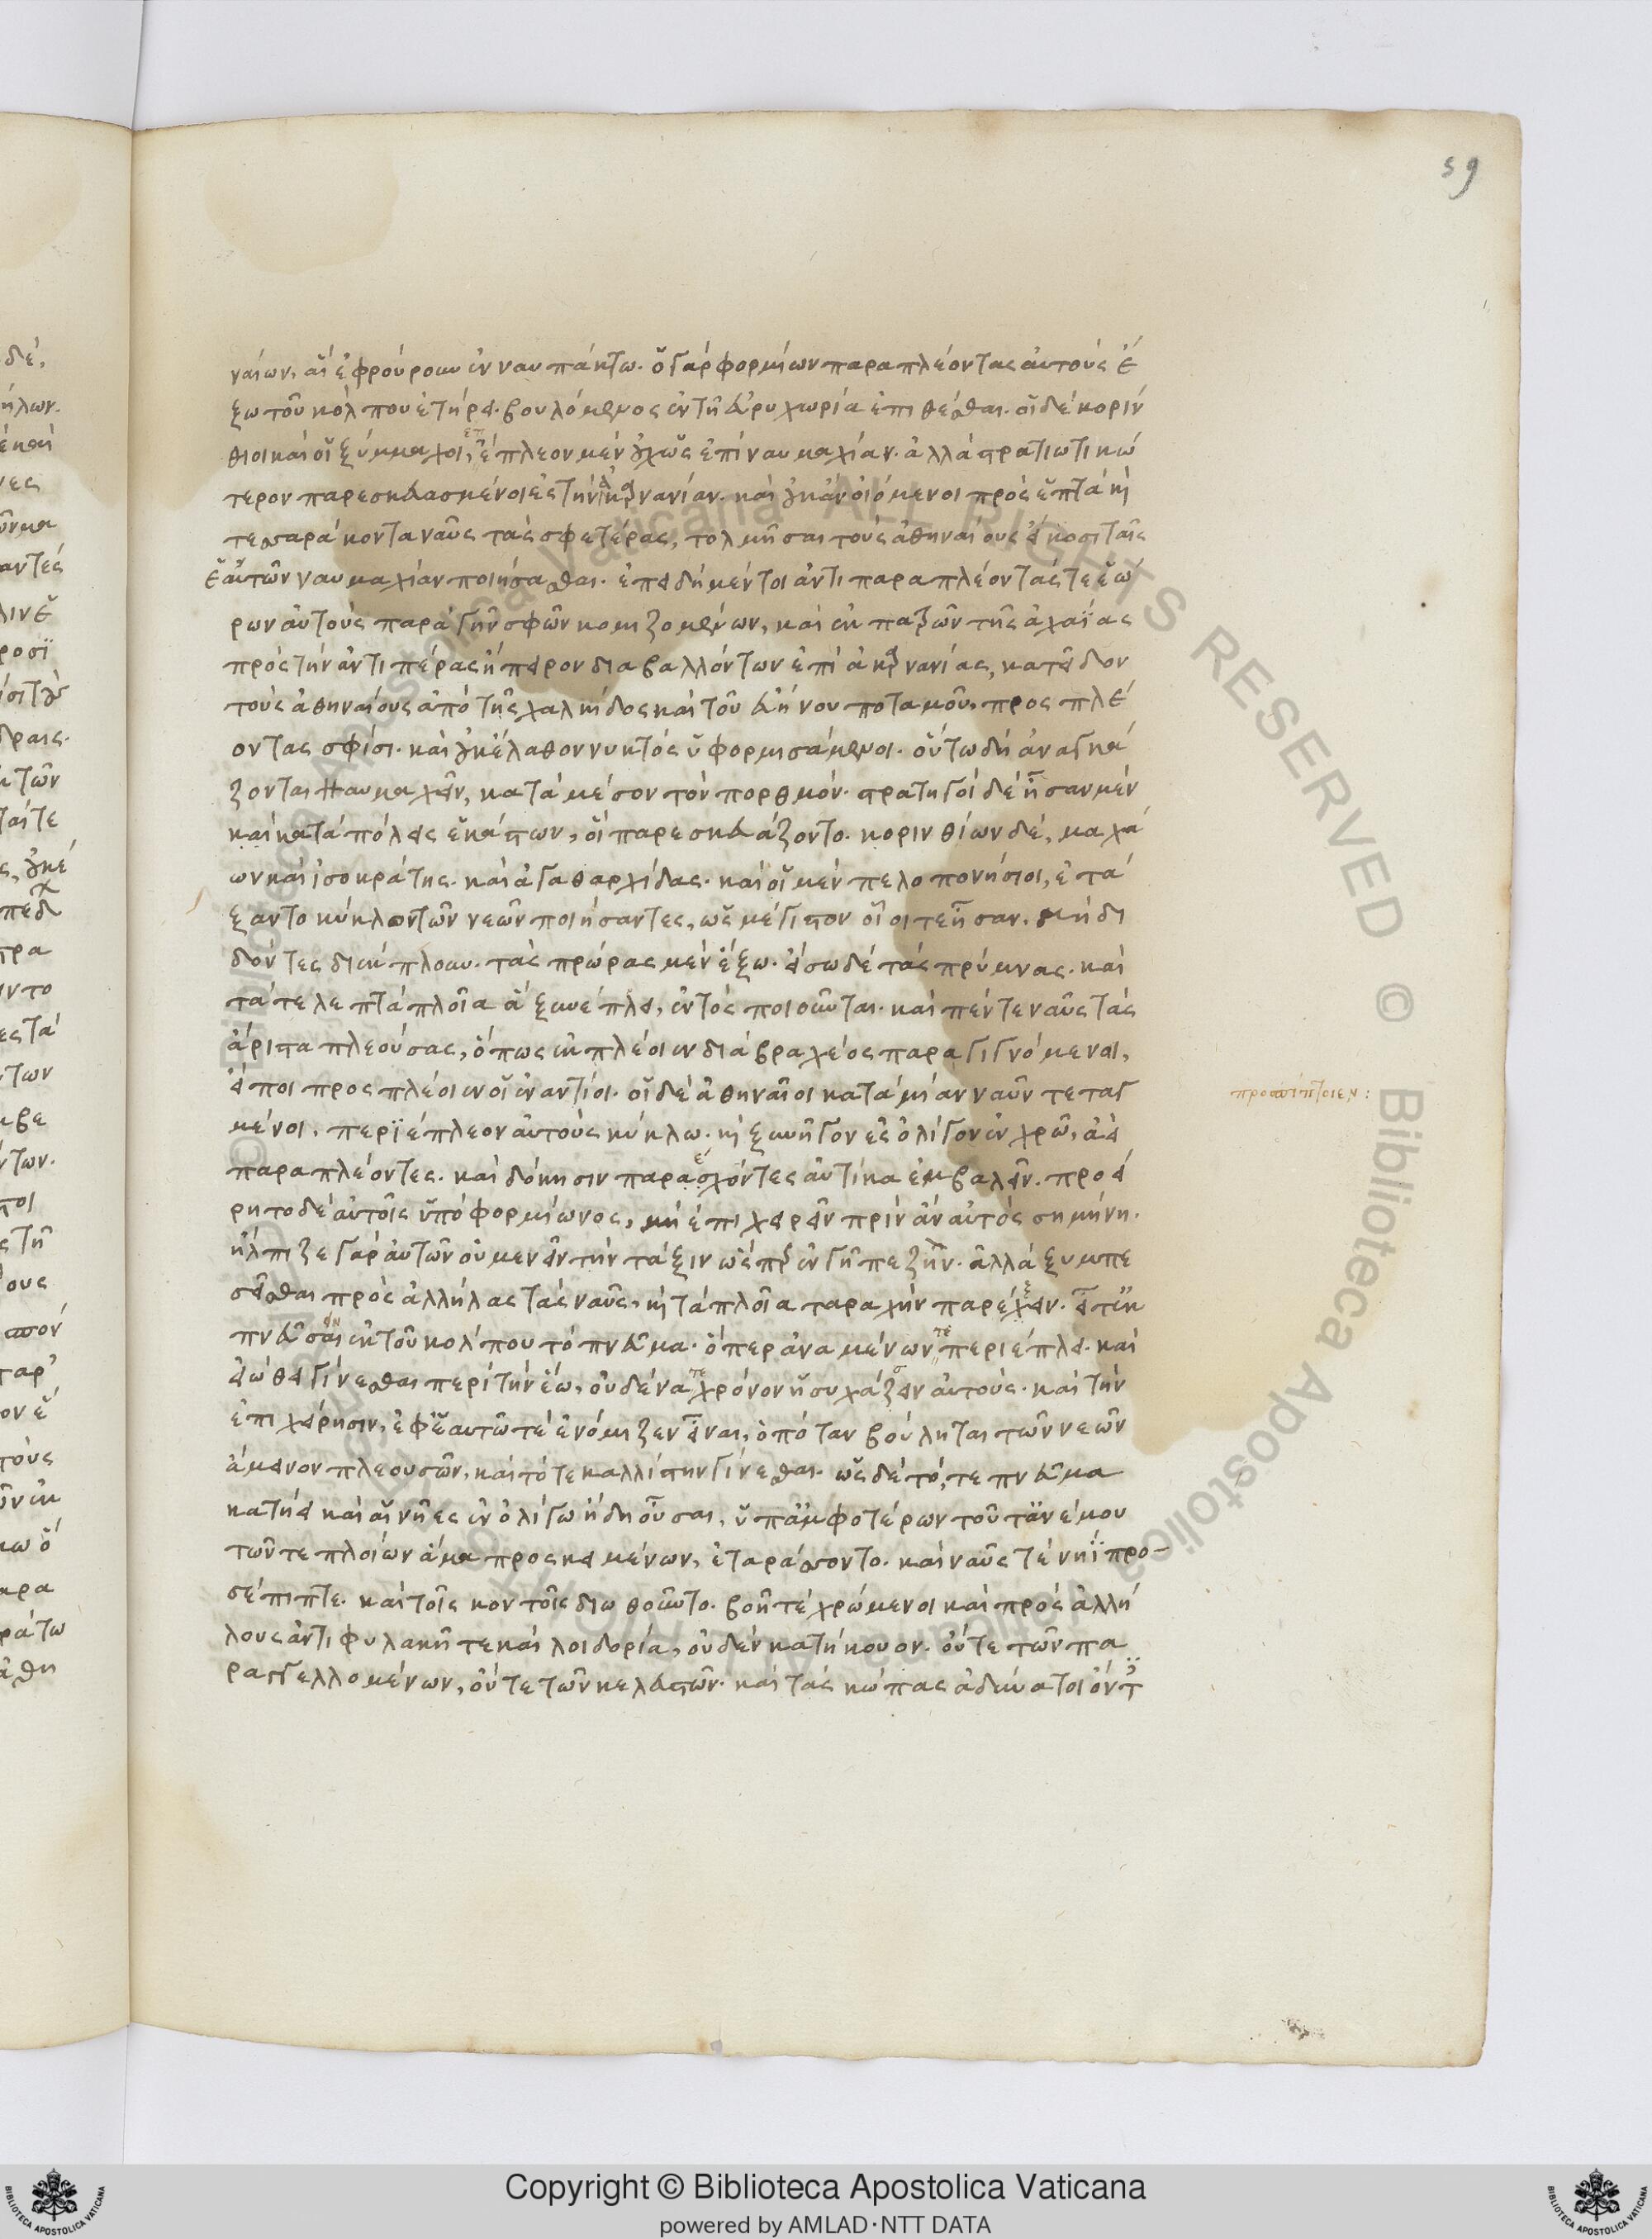 59
ναίων, αἵ ἐφρούρουν ἐν ναυπάκτω. ὁ γὰρ φορμίων παραπλέοντας αὐτοὺς ἔ
ξω τοῦ κόλπου ἐτήρει. βουλόμενος ἐν τῆ εὐρυχωρία ἐπιθέσθαι. οἱ δὲ κορίν
θιοι καὶ οἱ ξύμμαχοι, ἔπλεον μὲν οὐχ ὡς ἐπὶ ναυμαχίαν. ἀλλὰ στρατιωτικώ
τερον παρεσκευασμένοι ἐς τὴν ἀκαρνανίαν. καὶ οὐκ ἂν οἰόμενοι πρὸς ἑπτὰ καὶ
τεσσαράκοντα ναῦς τὰς σφετέρας, τολμῆσαι τοὺς ἀθηναίους εἴκοσι ταῖς
ἑαυτῶν ναυμαχίαν ποιήσασθαι. ἐπειδὴ μέντοι ἀντιπαραπλέοντάς τε ἑώ
ρων αὐτοὺς παρὰ γῆν σφῶν κομιζομένων, καὶ ἐκ πατρῶν τῆς ἀχαΐας
πρὸς τὴν ἀντιπέρας ἤπειρον διαβαλλόντων ἐπὶ ἀκαρνανίας, κατεῖδον
τοὺς ἀθηναίους ἀπὸ τῆς χαλκίδος καὶ τοῦ εὐήνου ποταμοῦ, προσπλέ
οντας σφίσι. καὶ οὐκ ἔλαθον νυκτὸς ὑφορμισάμενοι. οὕτω δὴ ἀναγκά
ζονται ναυμαχεῖν, κατὰ μέσον τὸν πορθμόν. στρατηγοὶ δὲ ἦσαν μὲν
καὶ κατὰ πόλεις ἑκάστων, οἳ παρεσκευάζοντο. κορινθίων δὲ, μαχά
ων καὶ ἰσοκράτης. καὶ ἀγαθαρχίδας. καὶ οἱ μὲν πελοπονήσιοι, ἐτά
ξαντο κύκλον τῶν νεῶν ποιήσαντες, ὡς μέγιστον οἷοί τε ἦσαν. μὴ δι
δόντες διέκπλουν. τὰς πρώρας μὲν ἔξω. εἴσω δὲ τὰς πρύμνας. καὶ
τά τε λεπτὰ πλοῖα ἃ ξυνέπλει, ἐντὸς ποιοῦνται. καὶ πέντε ναῦς τὰς
ἄριστα πλεούσας, ὅπως ἐκπλέοιεν διὰ βραχέος παραγιγνόμενοι,
εἴ ποι προσπλέοιεν οἱ ἐναντίοι. οἱ δὲ ἀθηναῖοι κατὰ μίαν ναῦν τεταγ
προσπίπτοιεν:
μένοι. περιέπλεον αὐτοὺς κύκλω. καὶ ξυνῆγον ἐς ὀλίγον ἐν χρῶ, ἀεὶ
παραπλέοντες. καὶ δόκησιν παρασχόντες αὐτίκα ἐμβαλεῖν. προεί
ρητο δὲ αὐτοῖς ὑπὸ φορμίωνος, μὴ ἐπιχειρεῖν πρὶν ἂν αὐτὸς σημήνη.
ἤλπιζε γὰρ αὐτῶν οὐ μενεῖν τὴν τάξιν ὥσπερ ἐν γῆ πεζὴν. ἀλλὰ ξυμπε
σεῖσθαι πρὸς ἀλλήλας τὰς ναῦς, καὶ τὰ πλοῖα ταραχὴν παρέχειν. εἴ τ' ἐκ
πνεῦσαι ἐκ τοῦ κολίπου τὸ πνεῦμα. ὅπερ ἀναμένων περιέπλει. καὶ
εἰώθει γίνεσθαι περὶ τὴν ἕω, οὐδένα χρόνον ἡσυχάζειν αὐτούς. καὶ τὴν
ἐπιχείρησιν, ἐφ' ἑαυτῶ τε ἐνόμιζεν εἶναι, ὁπόταν βούληται τῶν νεῶν
ἄμεινον πλεουσῶν, καὶ τότε καλλίστην γίνεσθαι. ὡς δὲ τό, τε πνεῦμα
κατήει καὶ αἱ νῆες ἐν ὀλίγω ἤδη οὖσαι, ὑπ' ἀμφοτέρων τοῦ τ' ἀνέμου
τῶν τε πλοίων ἅμα προσκειμένων, ἐταράσσοντο. καὶ ναῦς τὲ νηῒ προ-
σέπιπτε. καὶ τοῖς κοντοῖς διωθοῦντο. βοῆ τὲ χρώμενοι καὶ πρὸς ἀλλή
λους ἀντιφυλακῆ τε καὶ λοιδορία, οὐδὲν κατήκουον. οὔτε τῶν πα
ραγγελλομένων, οὔτε τῶν κελευστῶν. καὶ τὰς κώπας ἀδύνατοι ὄντ
Copyright © Biblioteca Apostolica Vaticana
powered by AMLAD·NTT DATA